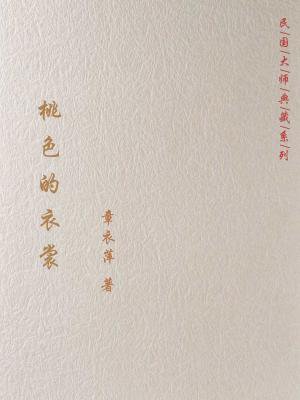 民|国|大|师|典|藏|系|列
桃色的衣裳
章衣萍 著